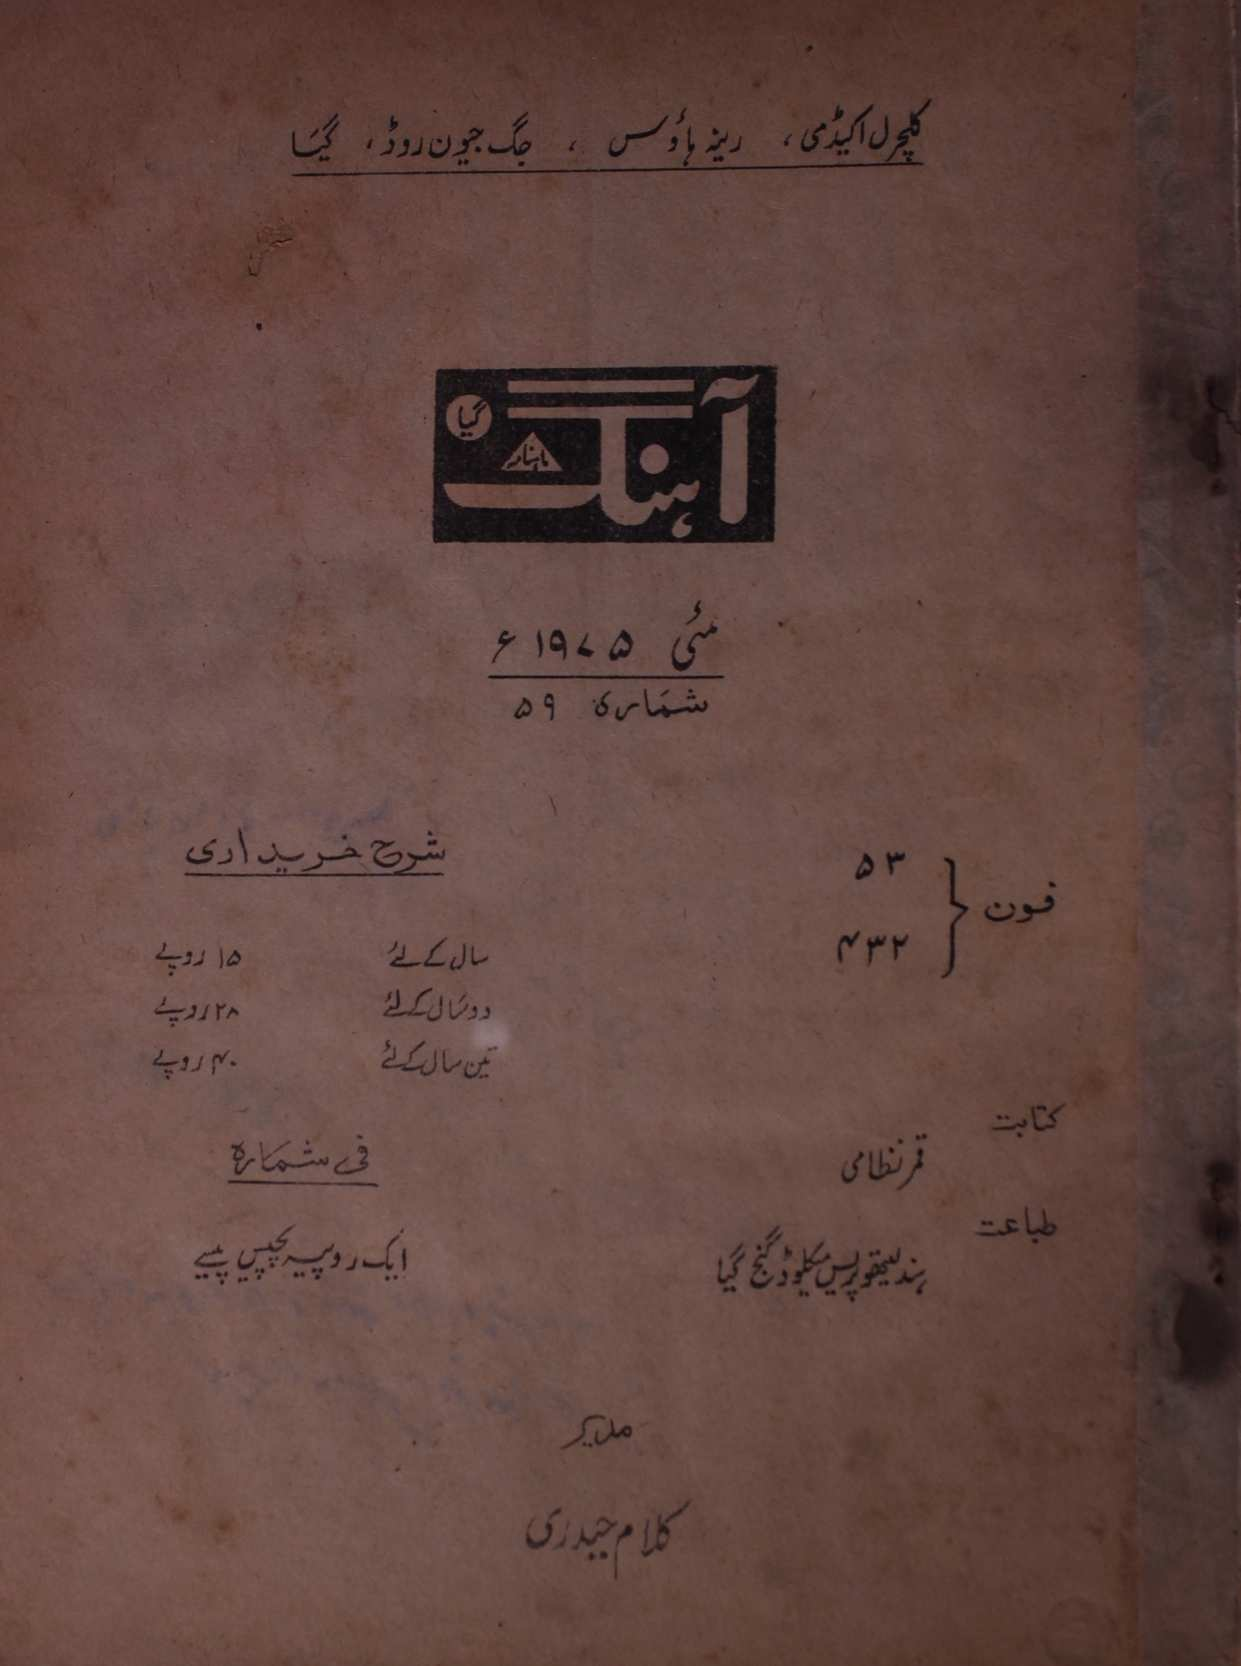 کلچرل اکیڈمی، رینہ ہاؤس ، جگ جیون روڈ، گیا
آہنگ
ماہنامہ
گیا
مئی ۱۹۷۵ ء
شمارہ ۵۹
فون
۵۳
۴۳۲
شرح خریداری
سال کے لئے ۱۵ روپے
دو سال کے لئے ۲۸ روپے
تین سال کے لئے ۴۰ روپے
کتابت
قمر نظامی
طباعت
ہند لیتھو پریس میکلوڈ گنج گیا
فی شمارہ
ایک روپیہ پچیس پیسے
مدیر
کلام حیدری